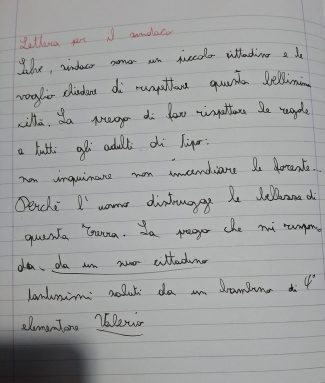 Lettera per il sindaco
Salve, sindaco sono un piccolo cittadino e le
voglio chiedere di rispettare questa bellissima
città. La prego di far rispettare le regole
a tutti gli adulti di tipo:
non inquinare non incendiare le foreste...
Perché l'uomo distrugge le bellezze di
questa Terra. La prego che mi rispon
da. da un suo cittadino
tantissimi saluti da un bambino di 4°
elementare Valerio